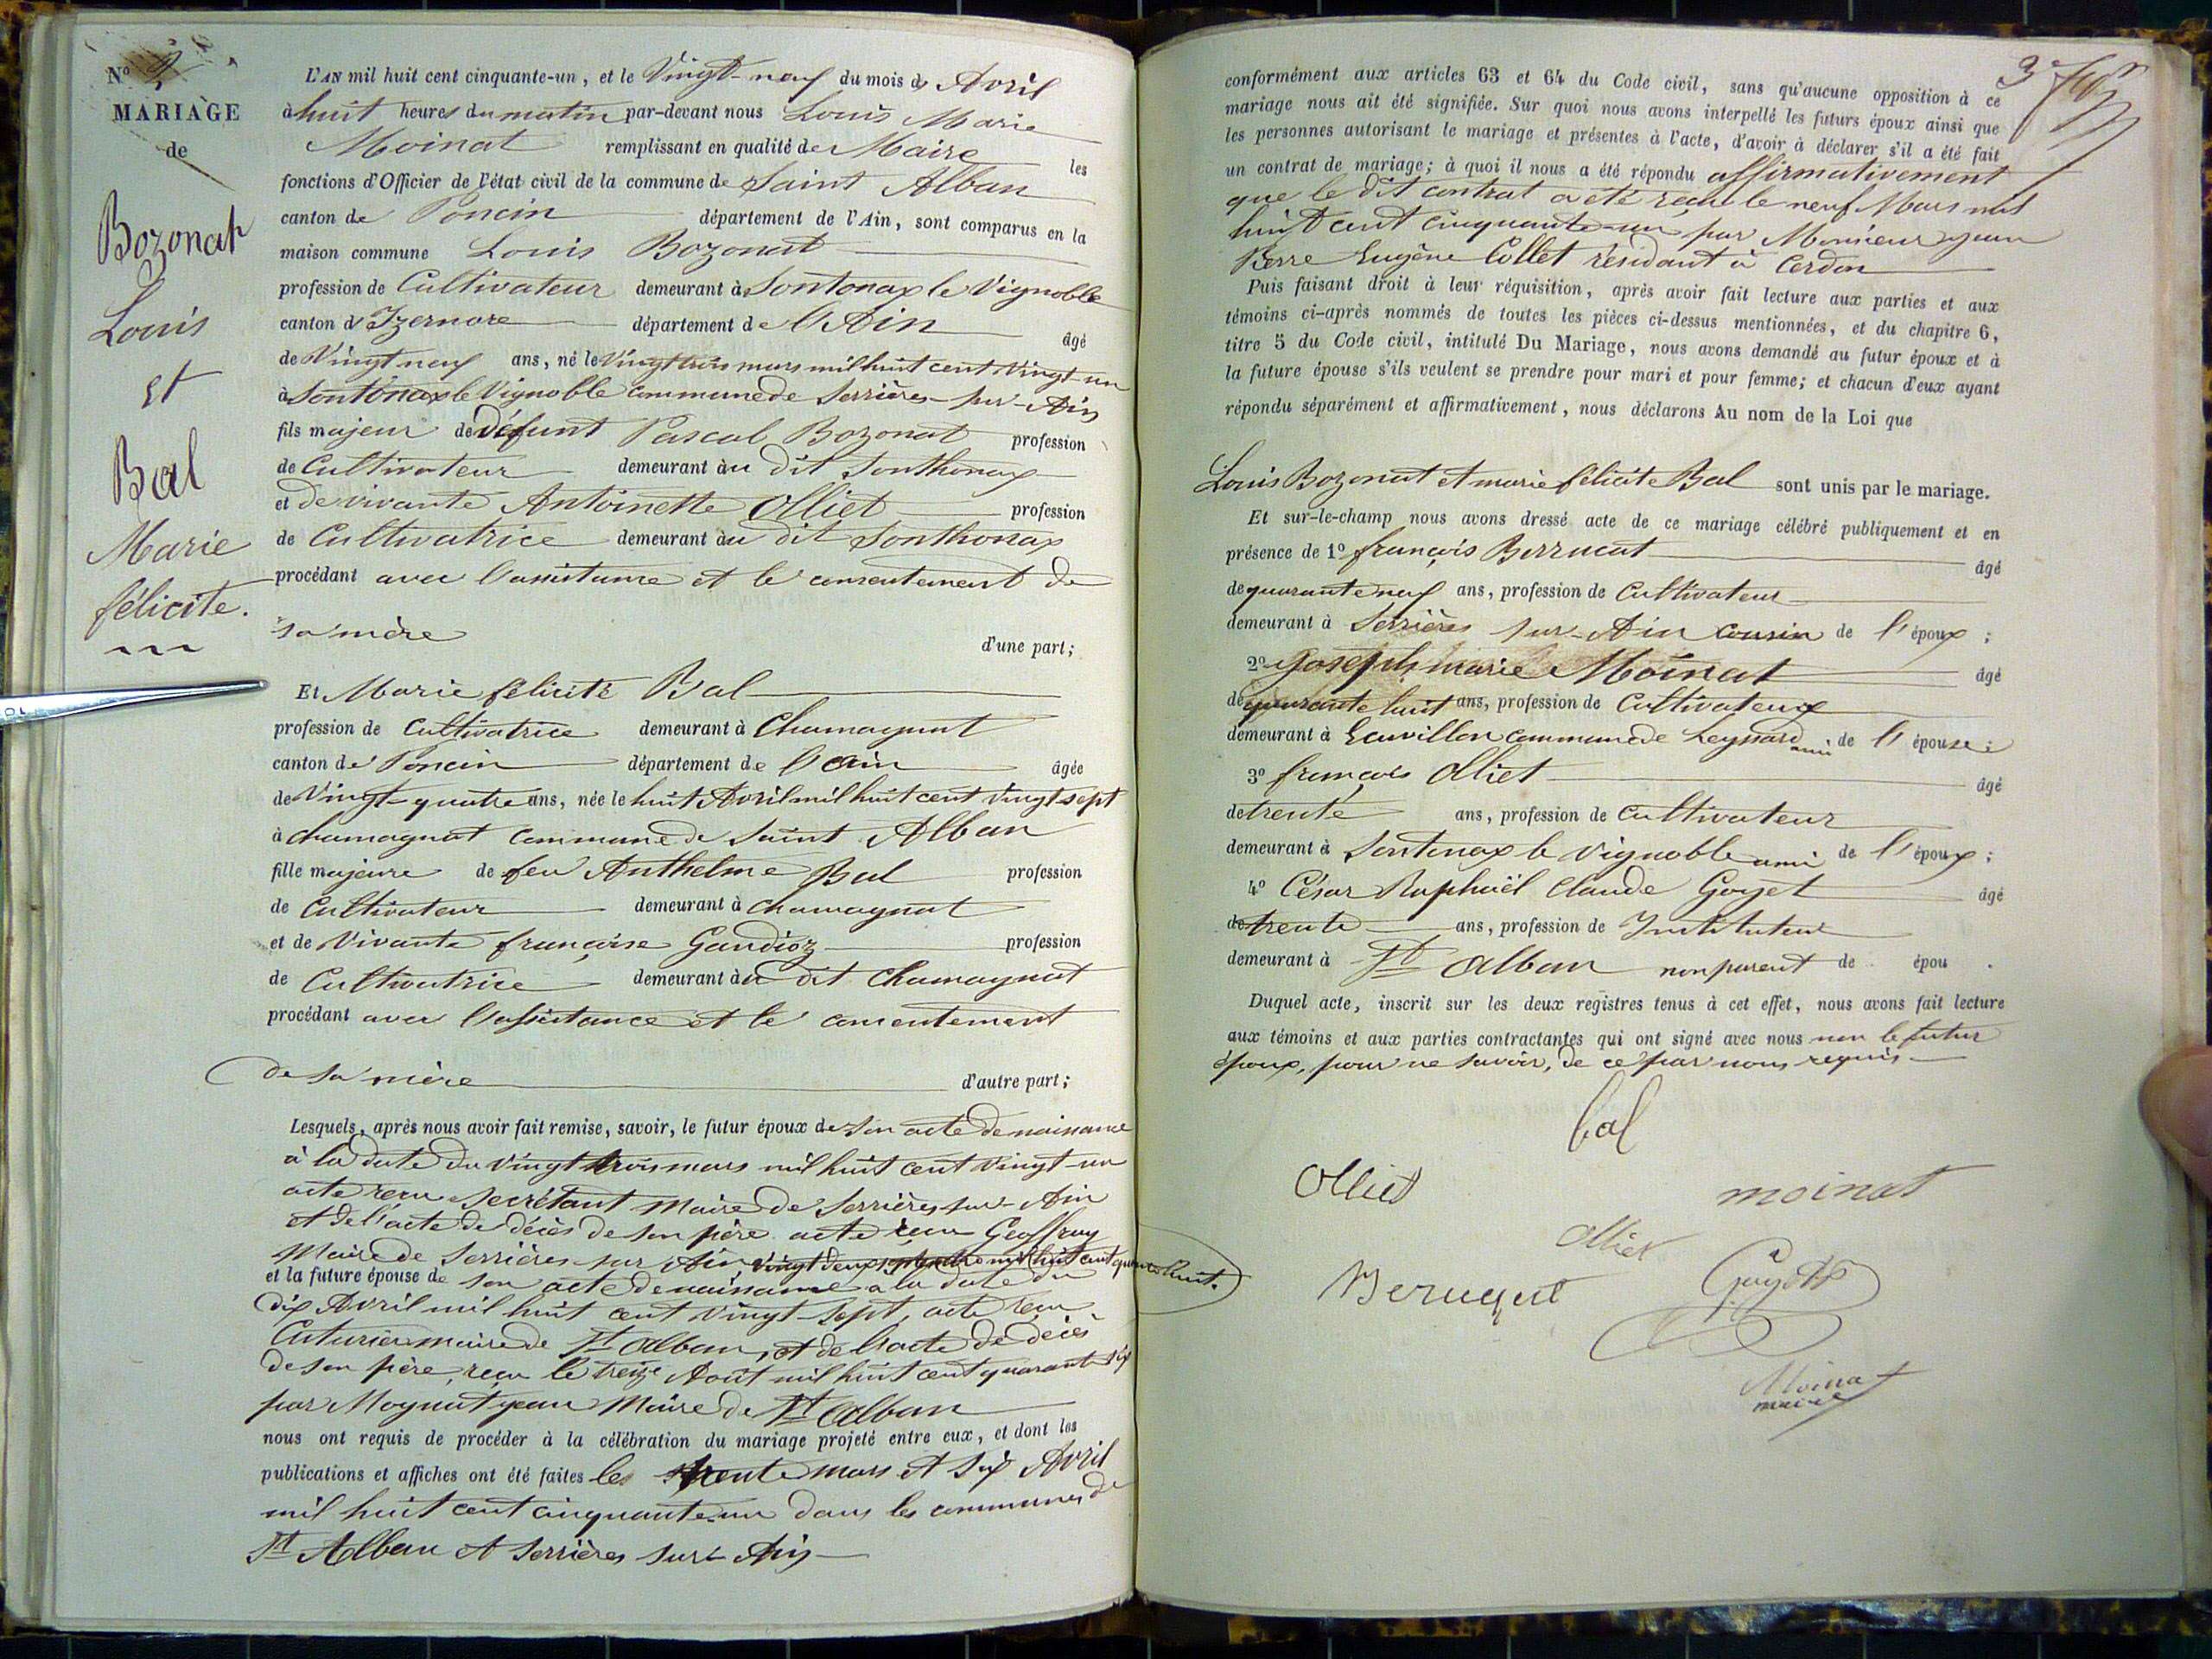 N°
MARIAGE
de
Bozonat
Louis
et
Bal
Marie
félicité.
L'AN mil huit cent cinquante-un, et le Vingt-neuf du mois d' Avril
à huit heures du matin par-devant nous Louis Marie
Moinat remplissant en qualité de Maire les
fonctions d'Officier de l'état civil de la commune de Saint Alban
canton de Poncin département de l'Ain, sont comparus en la
maison commune Louis Bozonat
profession de Cultivateur demeurant à Sontonax le Vignoble
canton d'Izernore département de l'Ain âgé
de Vingt neuf ans, né le Vingt trois mars mil huit cent vingt-un
à Sontonax le Vignoble commune de Serrières-sur-Ain
fils majeur de défunt Pascal Bozonat profession
de Cultivateur demeurant au dit Sonthonax
et de vivante Antoinette Olliet profession
de Cultivatrice demeurant au dit Sonthonax
procédant avec l'assistance et le consentement de
sa mère d'une part;
Et Marie félicité Bal
profession de Cultivatrice demeurant à Chamagnat
canton de Poncin département de l'Ain âgée
de Vingt-quatre ans, née le huit Avril mil huit cent vingt sept
à Chamagnat commune de Saint Alban
fille majeure de feu Anthelme Bal profession
de Cultivateur demeurant à Chamagnat
et de Vivante françoise Gandioz profession
de Cultivatrice demeurant au dit Chamagnat
procédant avec l'assistance et le consentement
de sa mère d'autre part;
Lesquels, après nous avoir fait remise, savoir, le futur époux de son acte de naissance
à la date du vingt trois mars mil huit cent vingt-un
acte reçu Secrétant Maire de Serrières sur-Ain
et de l'acte de décès de son père acte reçu Geoffray
Maire de Serrières sur Ain, vingt deux septembre mil huit cent quarante huit.
et la future épouse de son acte de naissance à la date du
dix Avril mil huit cent vingt-sept, acte reçu
Cuturier maire de St Alban, et de l'acte de décès
de son père, reçu le treize Août mil huit cent quarante six
par Moynat jean Maire de St Alban
nous ont requis de procéder à la célébration du mariage projeté entre eux, et dont les
publications et affiches ont été faites les trente mars et six Avril
mil huit cent cinquante-un dans les communes de
St Alban et Serrières sur-Ain
3e
conformément aux articles 63 et 64 du Code civil, sans qu'aucune opposition à ce
mariage nous ait été signifiée. Sur quoi nous avons interpellé les futurs époux ainsi que
les personnes autorisant le mariage et présentes à l'acte, d'avoir à déclarer s'il a été fait
un contrat de mariage; à quoi il nous a été répondu affirmativement
que le dit contrat a été reçu le neuf Mars mil
huit cent cinquante-un par Monsieur jean
Pierre Eugène Collet résidant à Cerdon
Puis faisant droit à leur réquisition, après avoir fait lecture aux parties et aux
témoins ci-après nommés de toutes les pièces ci-dessus mentionnées, et du chapitre 6,
titre 5 du Code civil, intitulé Du Mariage, nous avons demandé au futur époux et à
la future épouse s'ils veulent se prendre pour mari et pour femme; et chacun d'eux ayant
répondu séparément et affirmativement, nous déclarons Au nom de la Loi que
Louis Bozonat et marie félicité Bal sont unis par le mariage.
Et sur-le-champ nous avons dressé acte de ce mariage célébré publiquement et en
présence de 1° françois Berrucat âgé
de quarante neuf ans, profession de Cultivateur
demeurant à Serrières sur-Ain cousin de l'époux;
2° Joseph marie Moinat âgé
de quarante huit ans, profession de Cultivateur
demeurant à Ecuvillon commune de Leyssard ami de l'épouse;
3° françois Olliet âgé
de trente ans, profession de Cultivateur
demeurant à Sontonax le Vignoble ami de l'époux;
4° César Raphaël Claude Goyet âgé
de trente ans, profession de Instituteur
demeurant à St Alban non parent de épou .
Duquel acte, inscrit sur les deux registres tenus à cet effet, nous avons fait lecture
aux témoins et aux parties contractantes qui ont signé avec nous non le futur
époux, pour ne savoir, de ce par nous requis
bal
Olliet moinat
Olliet
Beruquet
Moinat
maire